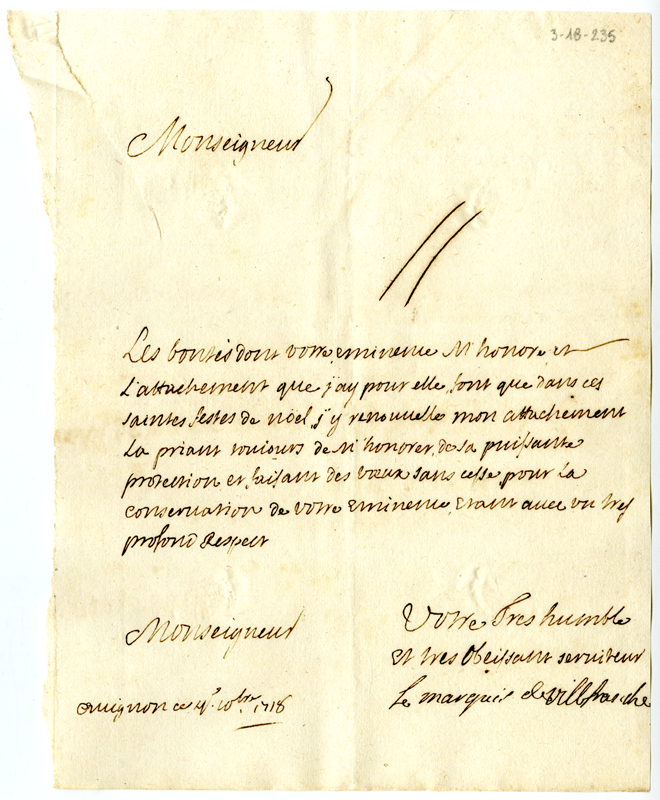 3-18-235
Monseigneur
Les bontés dont votre eminence M'honore et
L'attachement que j'ay pour elle, font que dans ces
saintes festes de nöel, j'y renouvelle mon attachement
La priant toujours de M'honorer de sa puissante
protection et faisant des vœux sans cesse pour La
conservation de votre Eminence, Etant avec un tres
profond Respect
Monseigneur
Votre tres humble
Et tres Obeissant serviteur
avignon ce 10bre 1718
Le marquis de villefranche